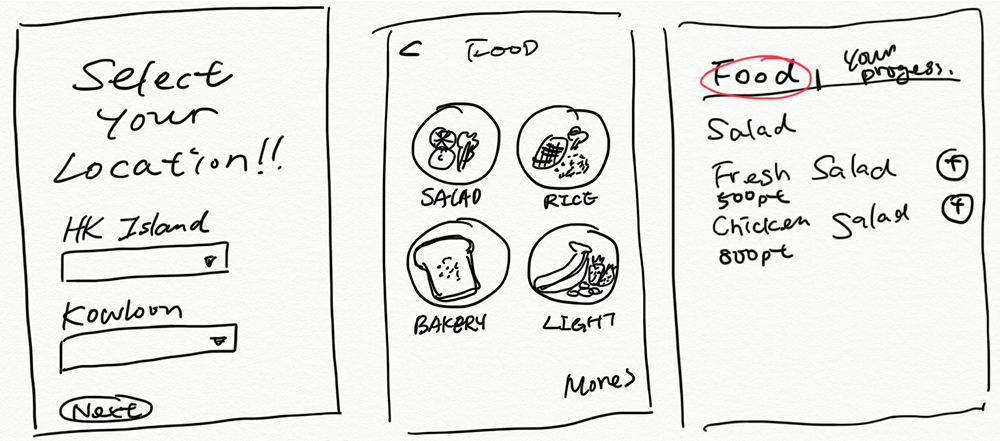 Select
Your
Location!!
HK Island
Kowloon
Next
<
FOOD
SALAD
RICE
BAKERY
LIGHT
Food
Your
progess.
Salad
Fresh Salad
500pt
Chicken Salad
800pt